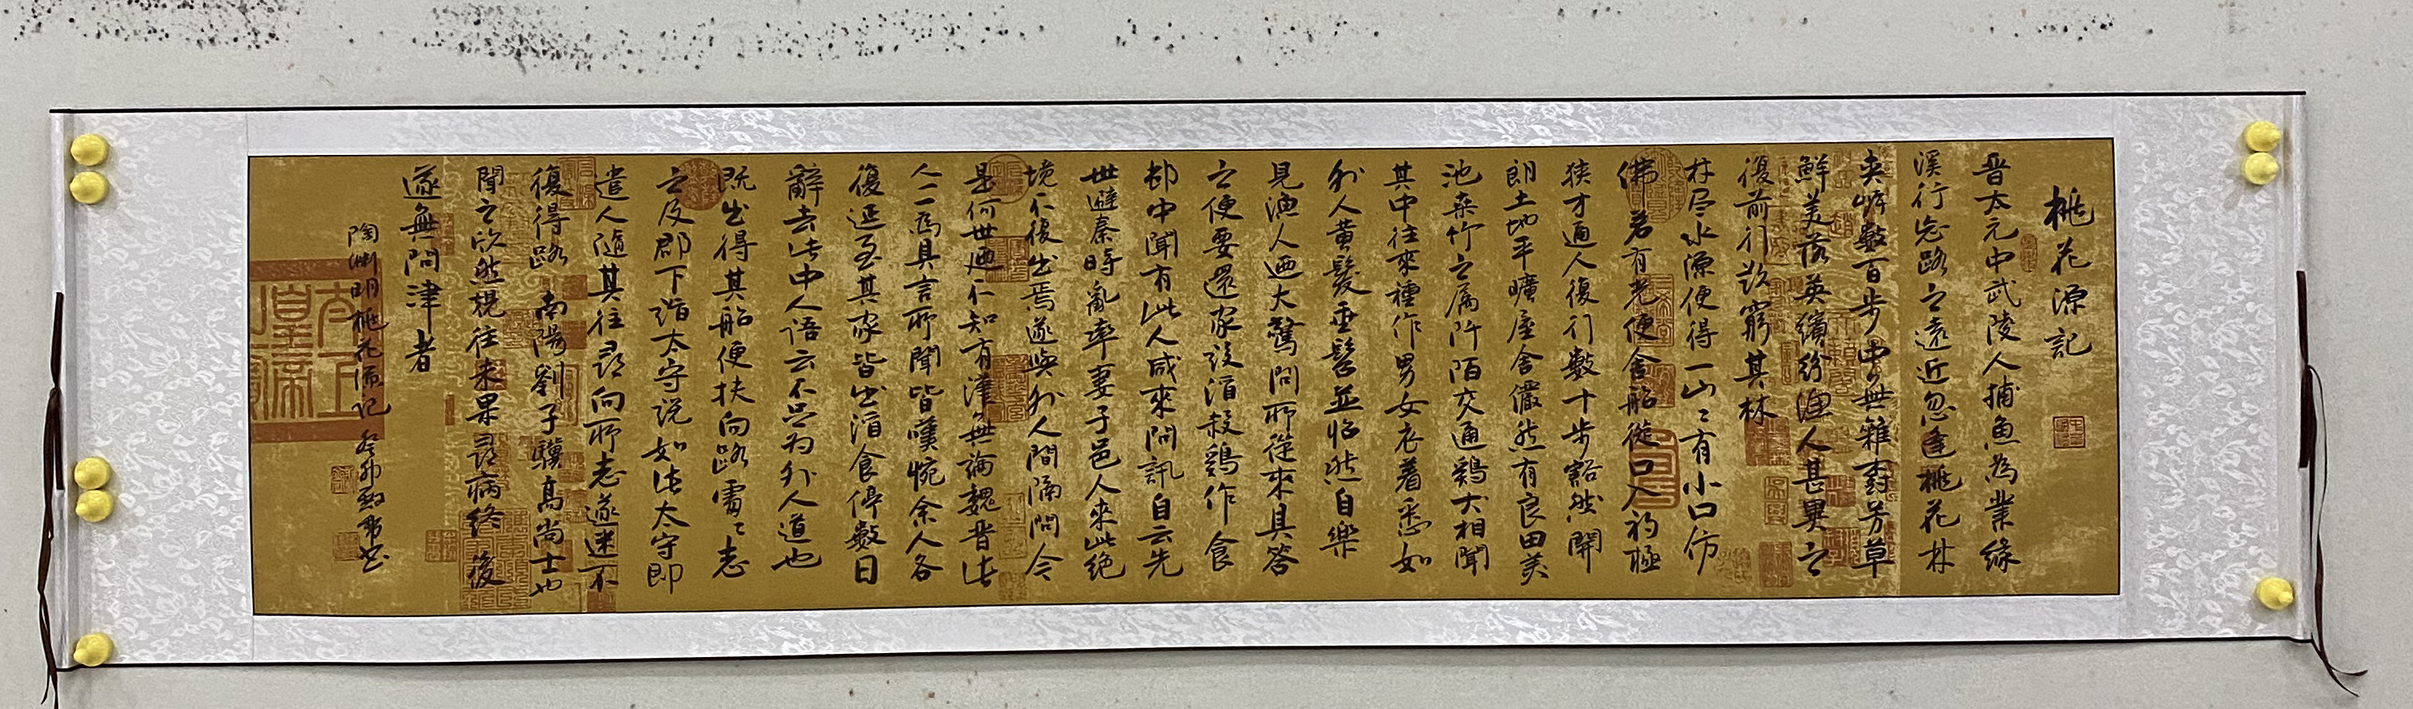 桃花源記
晉太元中武陵人捕魚為業緣
溪行忘路之遠近忽逢桃花林
夾岸數百步中無雜樹芳草
鮮美落英繽紛漁人甚異之
復前行欲窮其林
林尽水源便得一山山有小口仿
佛若有光便舍船從口入初極
狹才通人復行數十步豁然開
朗土地平曠屋舍儼然有良田美
池桑竹之属阡陌交通鷄犬相聞
其中往來種作男女衣着悉如
外人黄髮垂髫並怡然自樂
見漁人迺大驚問所從來具答
之便要還家設酒殺鷄作食
邨中聞有此人咸來問訊自云先
世避秦時亂率妻子邑人來此绝
境不復出焉遂與外人間隔問今
是何世迺不知有漢無論魏晉此
人一一為具言所聞皆嘆惋余人各
復延至其家皆出酒食停數日
辭去此中人語云不足为外人道也
既出得其船便扶向路處處志
之及郡下詣太守说如此太守即
遣人隨其往尋向所志遂迷不
復得路南陽劉子驥高尚士也
聞之欣然規往未果尋病终後
遂無問津者
陶渊明桃花源记癸卯